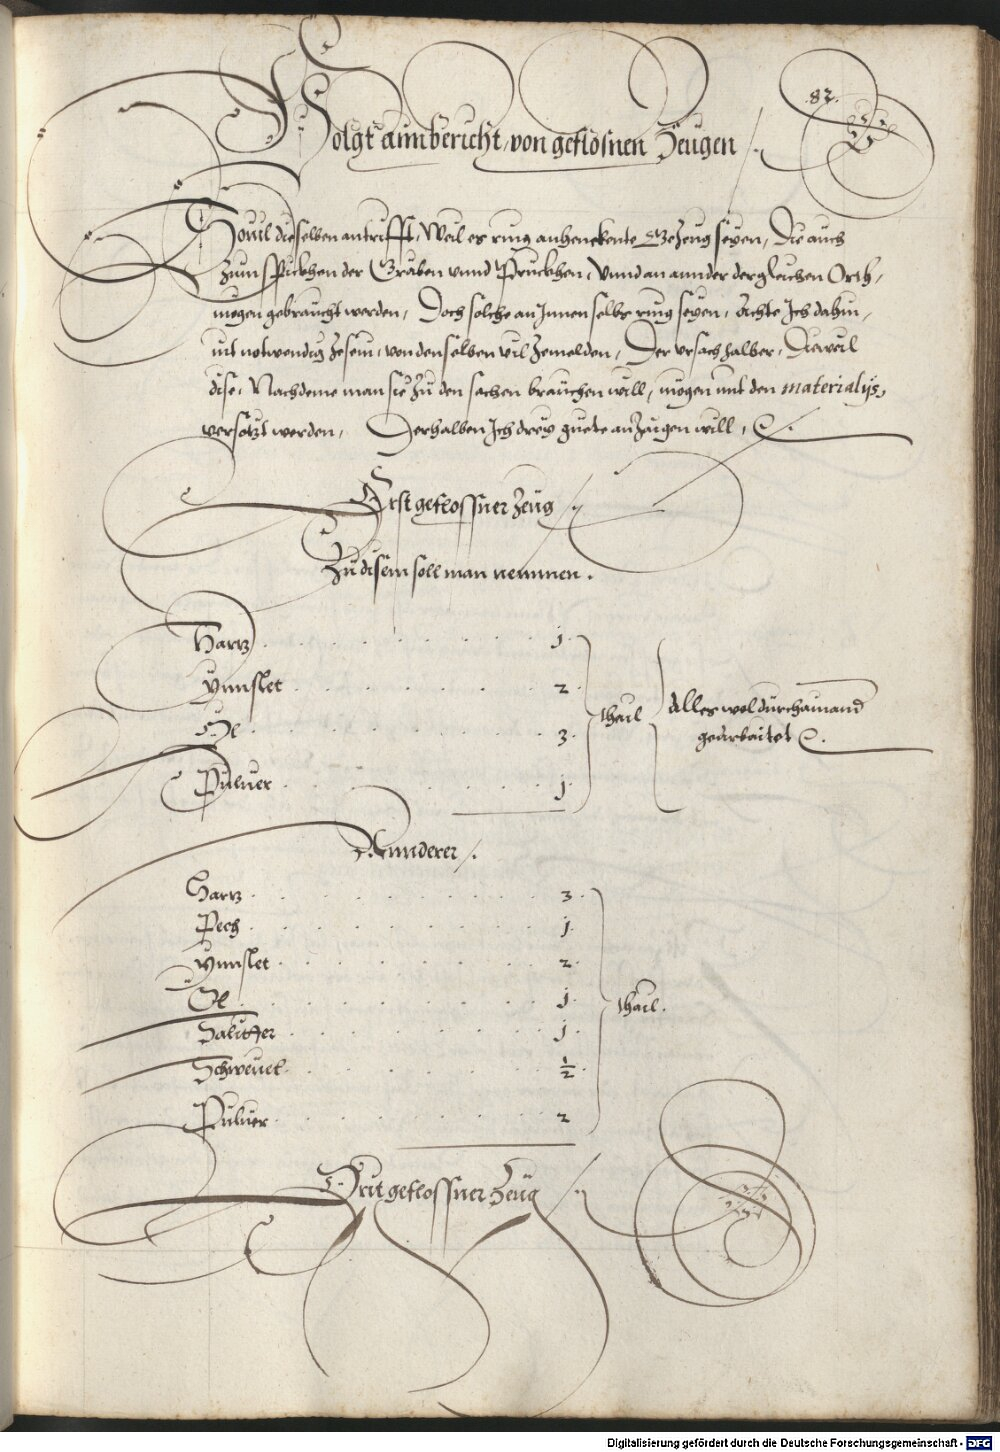 .82.
Folgt ainn bericht, von geflosnen Zeugen
Souil dieselben antrifft, Weil es ring anhenckente Gezeug seyen, Die auch
zum Spickhen der Gräben vnnd Pruckhen, Vnnd an annder dergleichen Orth,
mögen gebraucht werden, Doch solche an Jnnen selbs ring seyen, Achte Jch dahin,
nit notwendig zesein, von denselben vil zemelden, Der vrsach halber, Dieweil
dise, Nachdeme man sie zu den sachen brauchen will, mögen mit den materialijs,
versetzt werden, Derhalben Jch drey guete anzaigen will, &.
Erst geflossner Zeug
Zu disem soll man nemmen.
Hartz . . . 1
Vnnslet . . . 2
Öl . . . 3
Puluer . . . 1
thail
Alles wol durchainand
gearbaitet &.
Annderer
Hartz . . . 3
Pech . . . 1
Vnnslet . . . 2
Öl . . . 1
Saliter . . . 1
Schwevel . . . ½
Puluer . . . 2
thail.
Drit geflossner Zeug
Digitalisierung gefördert durch die Deutsche Forschungsgemeinschaft - DFG